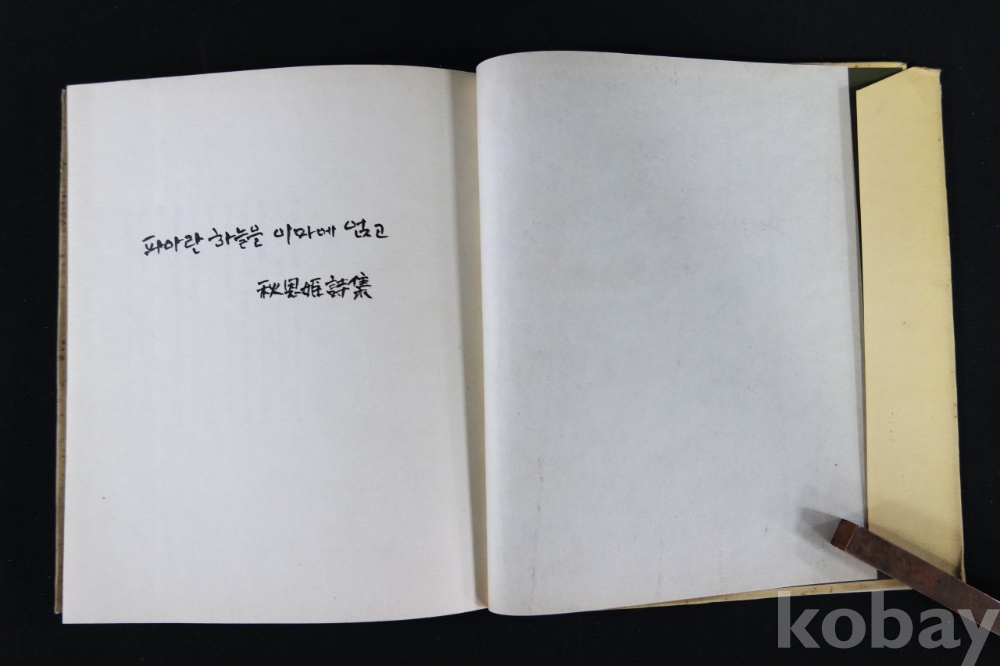 파아란 하늘을 이마에 얹고
秋恩姬詩集
kobay